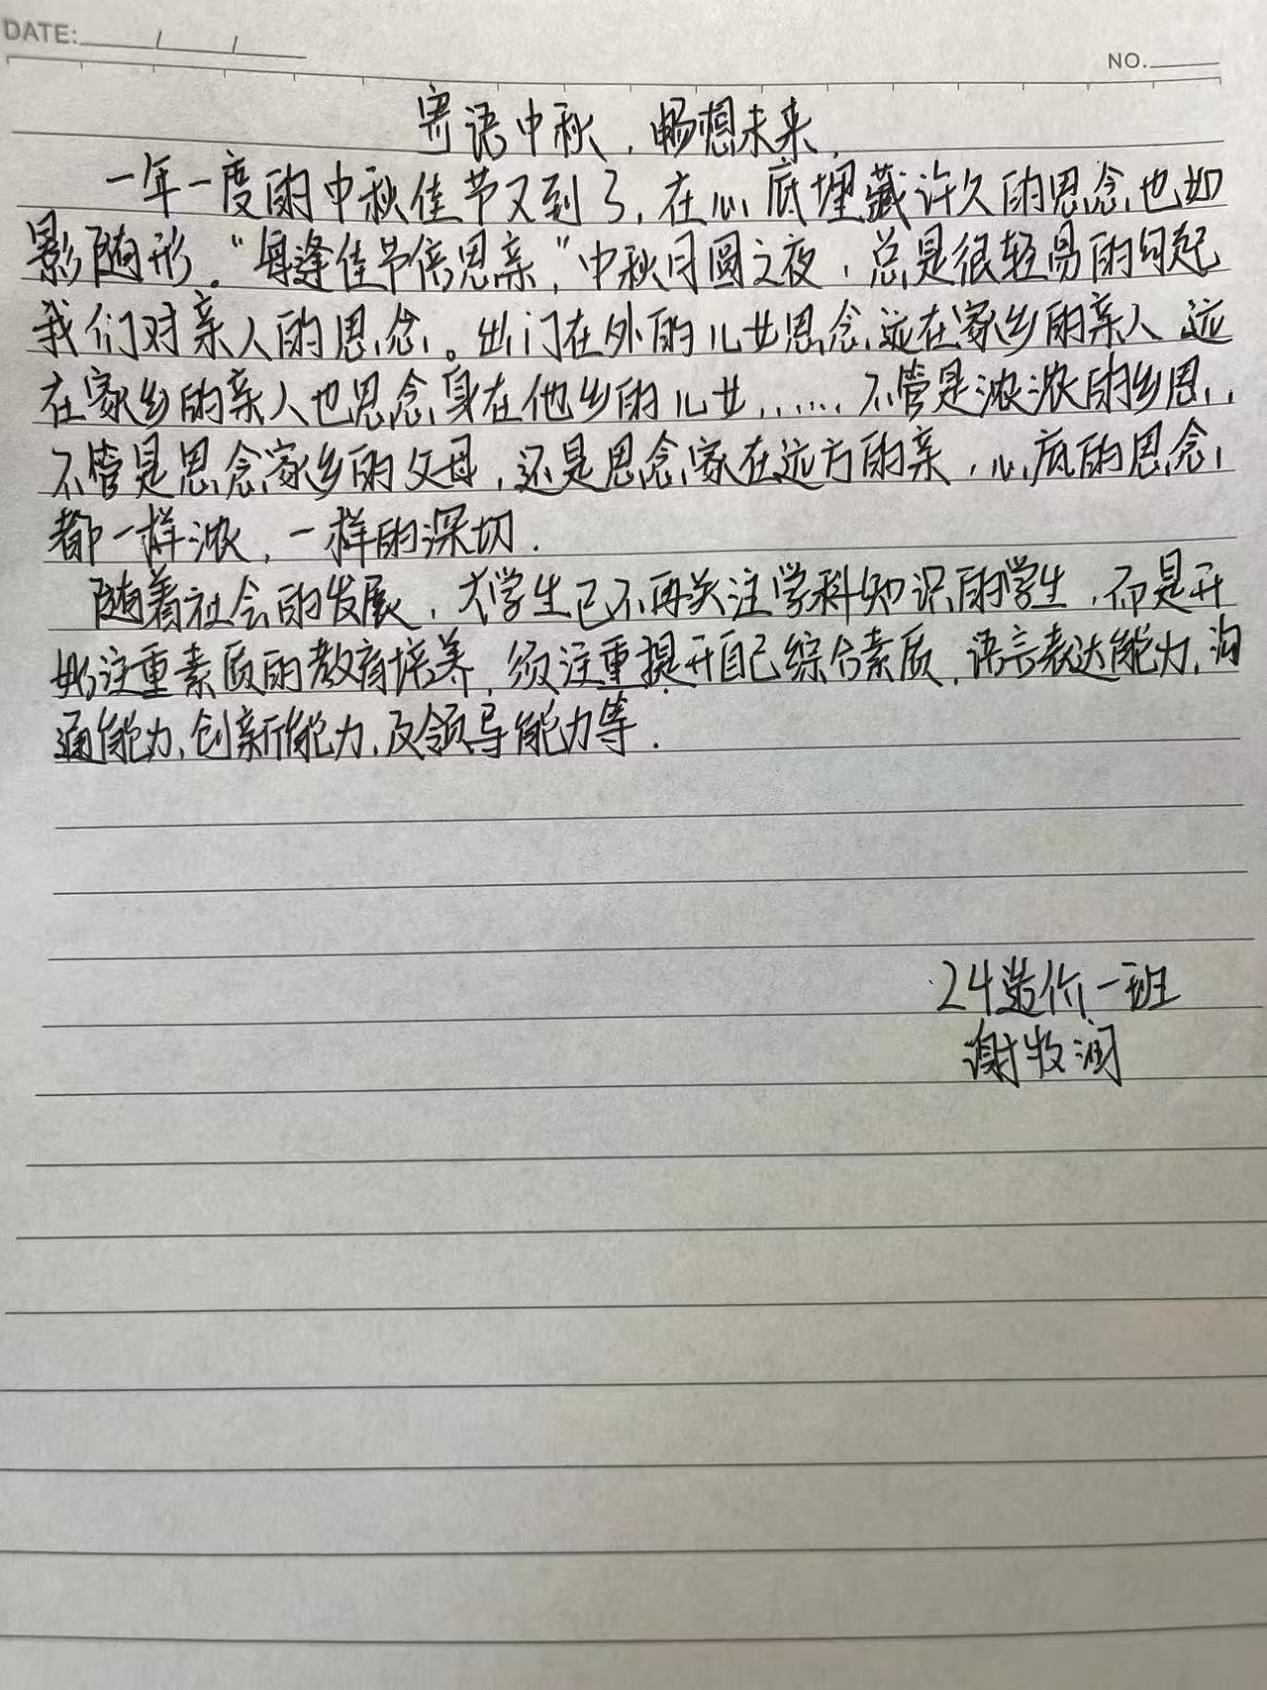 DATE: / /
NO.
寄语中秋,畅想未来.
一年一度的中秋佳节又到了,在心底埋藏许久的思念也如
影随形。“每逢佳节倍思亲,”中秋月圆之夜,总是很轻易的勾起
我们对亲人的思念。出门在外的儿女思念远在家乡的亲人 远
在家乡的亲人也思念身在他乡的儿女......不管是浓浓的乡思,
不管是思念家乡的父母,还是思念家在远方的亲,心底的思念,
都一样浓,一样的深切.
随着社会的发展,大学生已不再关注学科知识的学生,而是开
始注重素质的教育培养,须注重提升自己综合素质,语言表达能力,沟
通能力,创新能力,及领导能力等.
24造价一班
谢牧润